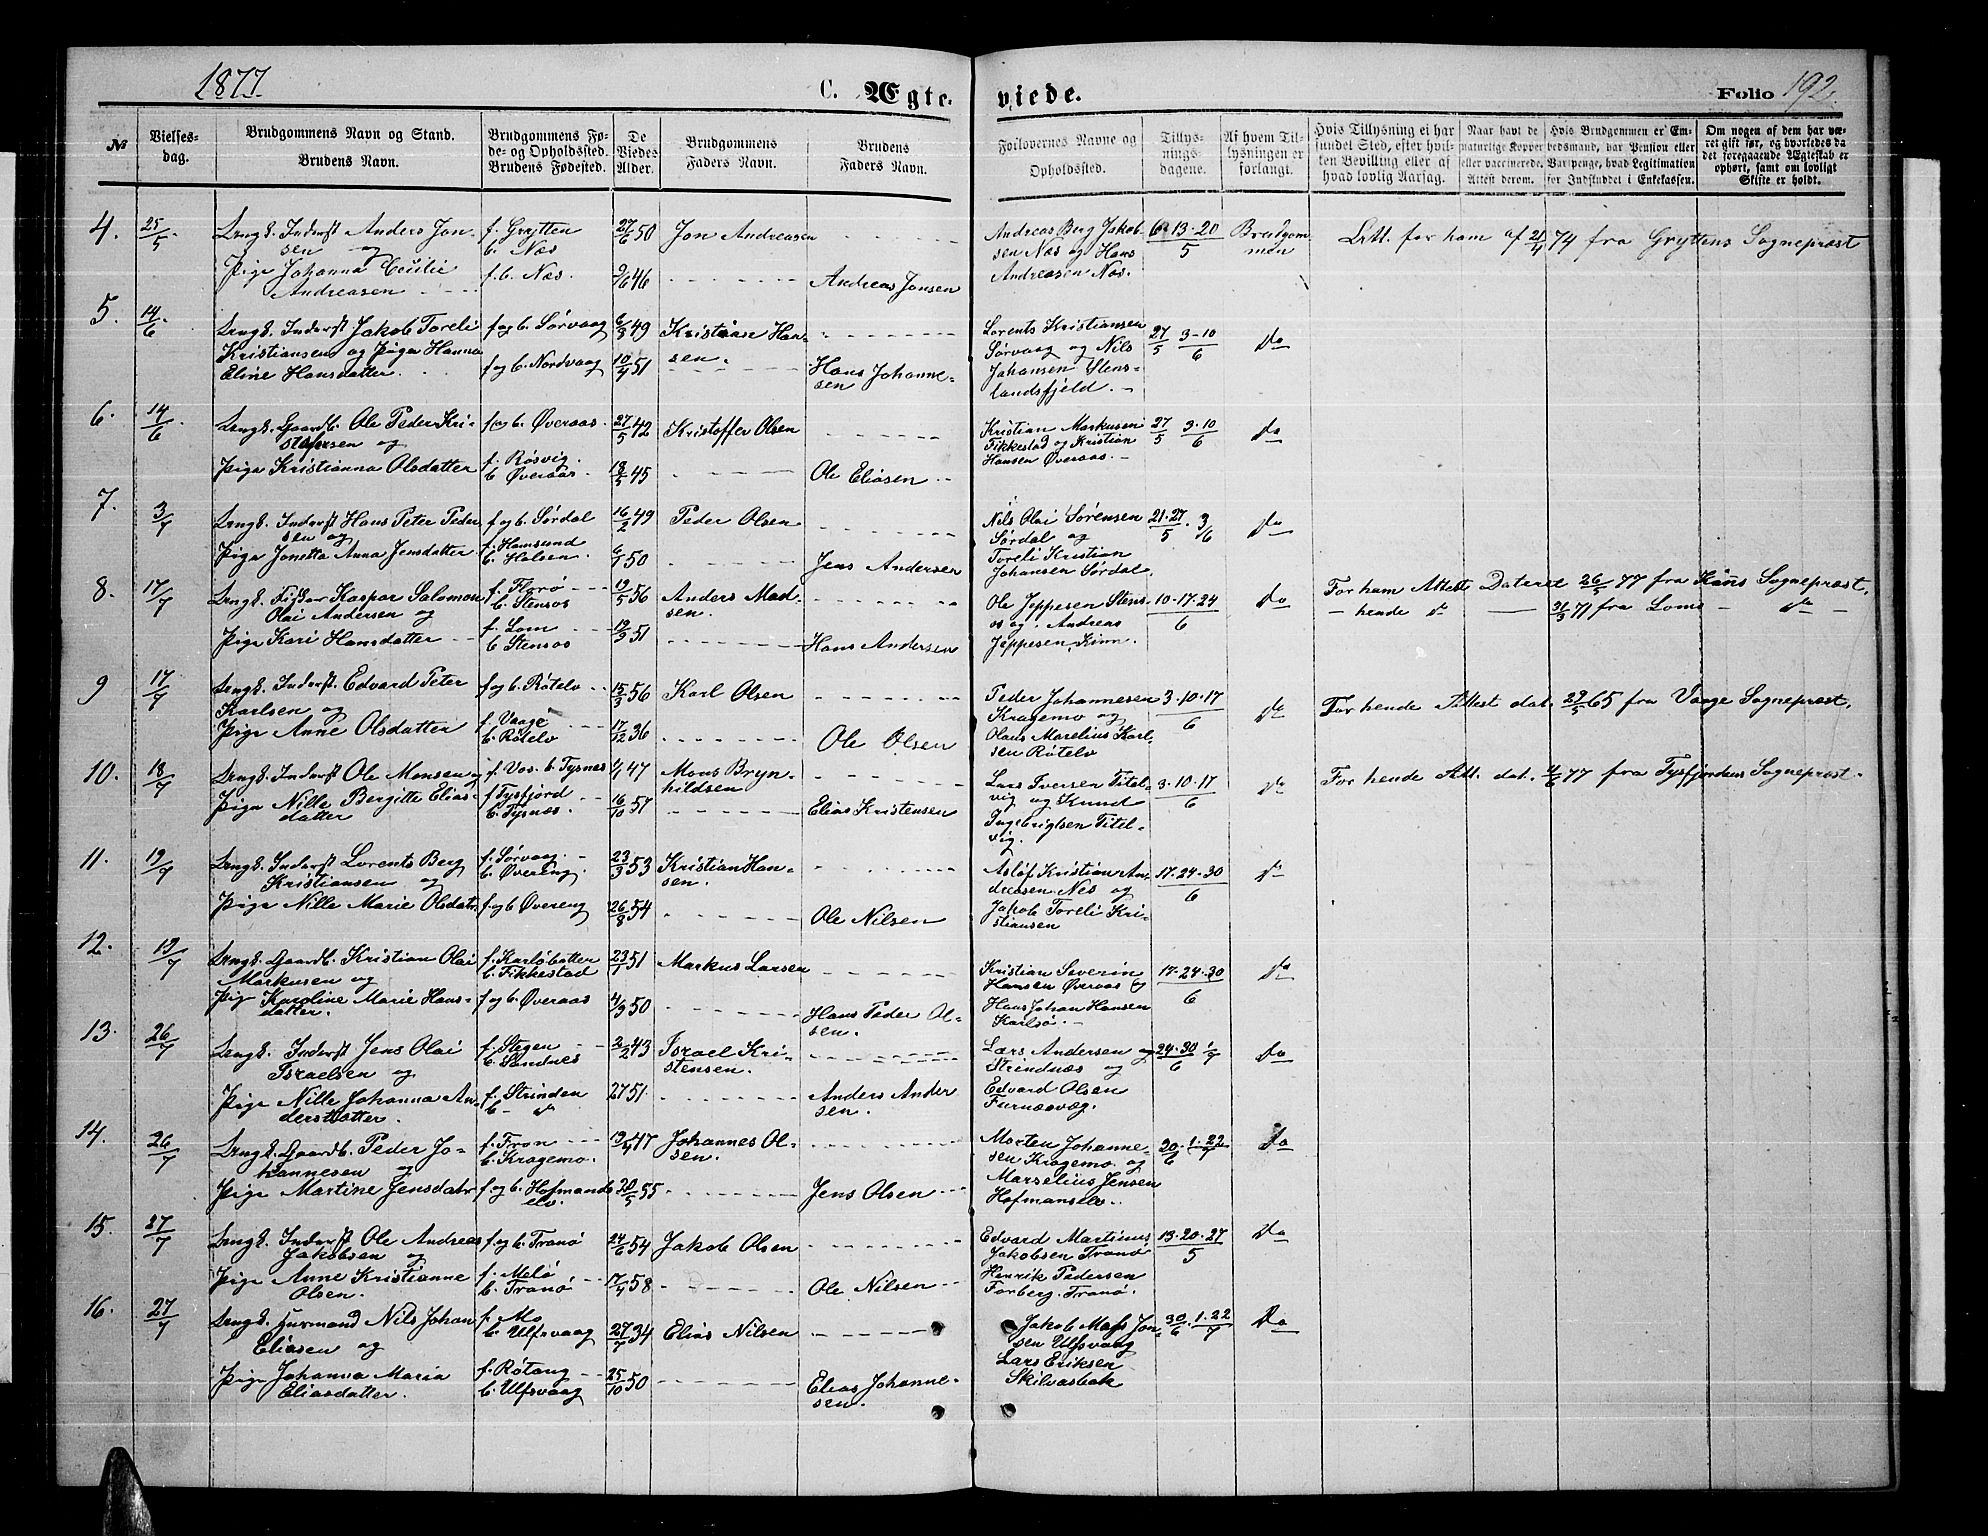 1877.
C. Ægte-
viede.
Folio 192.
No
Vielses-
dag.
Brudgommens Navn og Stand.
Brudens Navn.
Brudgommens Fø-
de- og Opholdssted.
Brudens Fødested.
De
Viedes
Alder.
Brudgommens
Faders Navn.
Brudens
Faders Navn.
Forlovernes Navne og
Opholdssted.
Tillys-
nings-
dagene.
Af hvem Til-
lysningen er
forlangt.
Hvis Tillysning ei har
fundet Sted, efter hvil-
ken Bevilling eller af
hvad lovlig Aarsag.
Naar havt de
naturlige Kopper
eller vaccinerede.
Attest derom.
Hvis Brudgommen er Em-
bedsmand, var Pension eller
Vartpenge, hvad Legitimation
for Indskuddet i Enkekassen.
Om nogen af dem har væ-
ret gift før, og hvorledes da
det foregaaende Ægteskab er
ophørt, samt om lovligt
Skifte er holdt.
4. 25/5. Ungk. Inderst Anders Jon-
sen og
f. Grytten
b. Næs
27/6 50 Jon Andreasen
Pige Johanna Cecilie
Andreasen
f. b. Næs. 9/6 46 Andreas Jonsen
Andreas Berg Jakob-
sen Næs og Hans
Andreasen Næs.
6. 13. 20/5 Brudgom
men
Att. for ham af 21/4 74 fra Gryttens Sognepræst
5. 14/6. Ungk. Inderst Jakob Toreli
Kristiansen og Pige Hanna
Eline Hansdatter.
f. og b. Sørvaag 6/3 49 Kristian Han-
sen.
f. og b. Nordvaag 10/4 51 Hans Johanne-
sen
Lorents Kristiansen
Sørvaag og Nils
Johansen Stens-
landsfjeld.
27/5 3-10/6 Do
6. 14/6. Ungk. Gaardb. Ole Peder Kri-
stofersen og
f. og b. Øveraas 27/5 42 Kristoffer Olsen
Pige Kristianna Olsdatter f. Røsvig.
b. Øveraas. 18/5 45 Ole Eliasen
Kristian Markusen
Fikkestad og Kristian
Hansen Øveraas.
27/5 3-10/6 Do
7. 3/7 Ungk. Inderst Hans Peter Peder
sen og
f. og b. Sørdal 16/2 49 Peder Olsen
Pige Jonetta Anna Jensdatter f. Hamsund
b. Holsen. 6/1 50 Jens Andersen
Nils Olai Sørensen
Sørdal og
Toreli Kristian
Johansen Sørdal.
21. 27/5. 3/6 Do
8. 17/7 Ungk. Fisker Kaspar Salomon
Olai Andersen og
f. Florø
b. Stensos
19/5 56 Anders Mad
sen.
Pige Kari Hansdatter f. Lom
b. Stensos 19/3 51 Hans Andersen
Ole Jeppesen Stens-
os og Andreas
Jeppesen, Kinn.
10. 17. 24/6 Do
For ham Attest Dateret 26/5 77 fra Kins Sognepræst,
- hende do 31/3 77 fra Loms do
9 17/7 Ungk. Inderst. Edvard Peter
Karlsen og
f. og b. Røtelv 15/3 56 Karl Olsen
Pige Anne Olsdatter f. Vaage
b. Røtelv 17/12 36 Ole Olsen
Peder Johannesen
Kragemo og
Olaus Marelius Karl-
sen Røtelv
3. 10. 17/6 Do
For hende Attest dat. 29/5 65 fra Vaage Sognepræst.
10. 18/7 Ungk. Inderst Ole Monsen og f. Vos. b. Tysnes 4/1 47 Mons Bryn-
hildsen
Pige Nille Bergitte Elias-
datter
f. Tysfjord
b. Tysnæs. 16/10 57 Elias Kristensen
Lars Iversen Titel-
vig og Knud
Ingebrigtsen Titel-
vig.
3. 10. 17/6 Do
For hende Att. dat. 4/6 77 fra Tysfjordens Sognepræst.
11. 19/7 Ungk. Inderst Lorents Berg
Kristiansen og
f. Sørvaag.
b. Øvereng. 23/3 53 Kristian Han-
sen.
Pige Nille Marie Olsdatr. f. og b. Øvereng 26/8 54 Ole Nilsen
Asløf Kristian An-
dreasen Nes og
Jakob Toreli Kri-
stiansen
17. 24. 30/6 Do
12. 19/7 Ungk. Gaardb. Kristian Olai
Markusen og
f. Karløbatter
b. Fikkestad 23/1 51 Markus Larsen
Pige Karoline Marie Hans-
datter.
f. og b. Øveraas 4/9 50 Hans Peder Ol-
sen.
Kristian Severin
Hansen Øveraas og
Hans Johan Hansen
Karlsø.
17. 24. 30/6 Do
13. 26/7 Ungk. Inderst Jens Olai
Israelsen og
f. Stegen
b. Sandnes 2/2 43 Israel Kri-
stensen.
Pige Nille Johanna An-
dersdatter.
f. Strinden
b. - do 27 51. Anders Ander
sen.
Lars Andersen
Strindnæs og
Edvard Olsen
Furnæsvæg.
24. 30/6 1/7 Do
14. 26/7 Ungk. Gaardb. Peder Jo-
hannesen og
f. Fron
b. Kragemo. 19/4 47 Johannes Ol-
sen.
Pige Martine Jensdatr. f. og b. Hofmands
elv. 20/5 55 Jens Olsen
Morten Johanne-
sen Kragemo. og
Marselius Jensen
Hofmanselv.
30/6. 1. 22/7 Do
15. 27/7 Ungk. Inderst Ole Andreas
Jakobsen og
f. og b. Tranø 24/6 54 Jakob Olsen
Pige Anne Kristianne
Olsen.
f. Melø
b. Tranø 17/4 58 Ole Nilsen
Edvard Martinus
Jakobsen Tranø
Henrik Pedersen
Forberg. Tranø.
13. 20. 27/5 Do
16. 27/7 Ungk. Husmand Nils Johan
Eliasen og
f. Mo
b. Ulfsvaag 27/7 34 Elias Nilsen
Pige Johanna Maria
Eliasdatter.
f. Røtang
b. Ulfsvaag 25/10 50 Elias Johanne-
sen.
Jakob Mass Jon-
sen Ulfsvaag
Lars Eriksen
Skilvasbak
30/6. 1. 22/7 Do